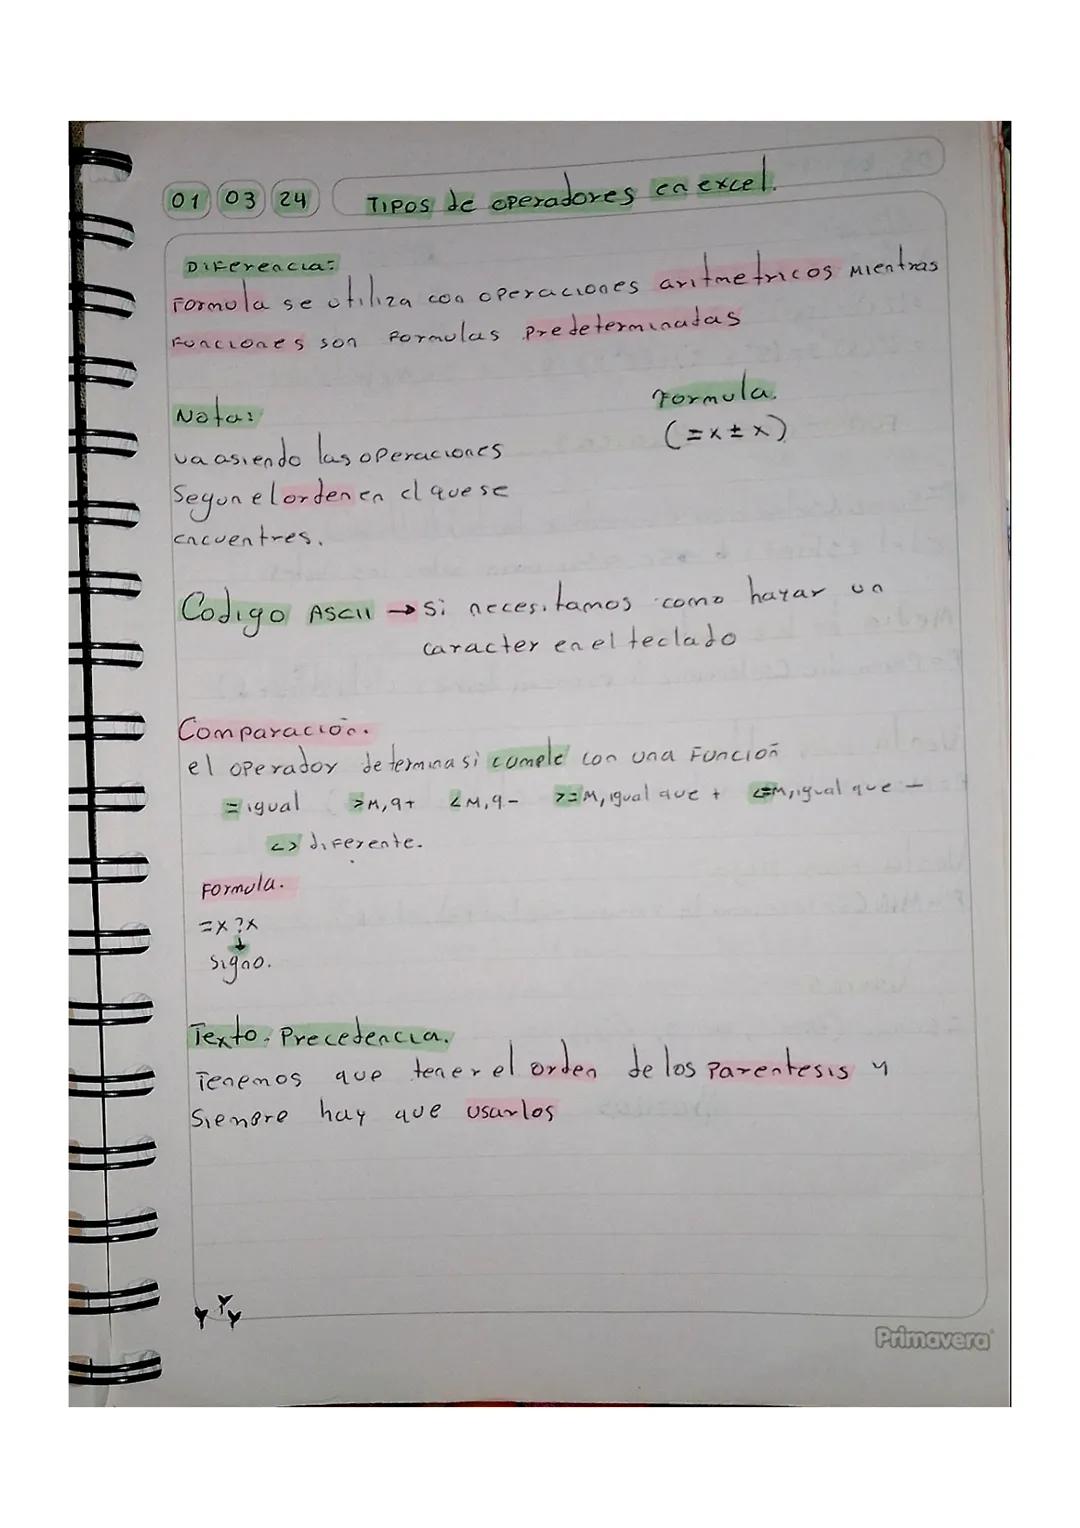 01 03 24 Tipos de operadores en excel.
Diferencia:
Formula se utiliza con operaciones aritmetricos mientras
Funciones son Formulas predeterminadas
Nota:
va asiendo las operaciones
Segun el orden en el que se
encuentres.
Formula.
(=x±x)
Codigo ASCII → Si necesitamos como hayar un
caracter en el teclado
Comparación.
el operador determina si cumple con una Función
= igual >M,q+ <M,q- >=M,igual que + <=M,igual que -
<> diferente.
Formula.
=x?x
↓
Signo.
Texto. Precedencia.
Tenemos que tener el orden de los Parentesis y
Siempre hay que usarlos
Primavera